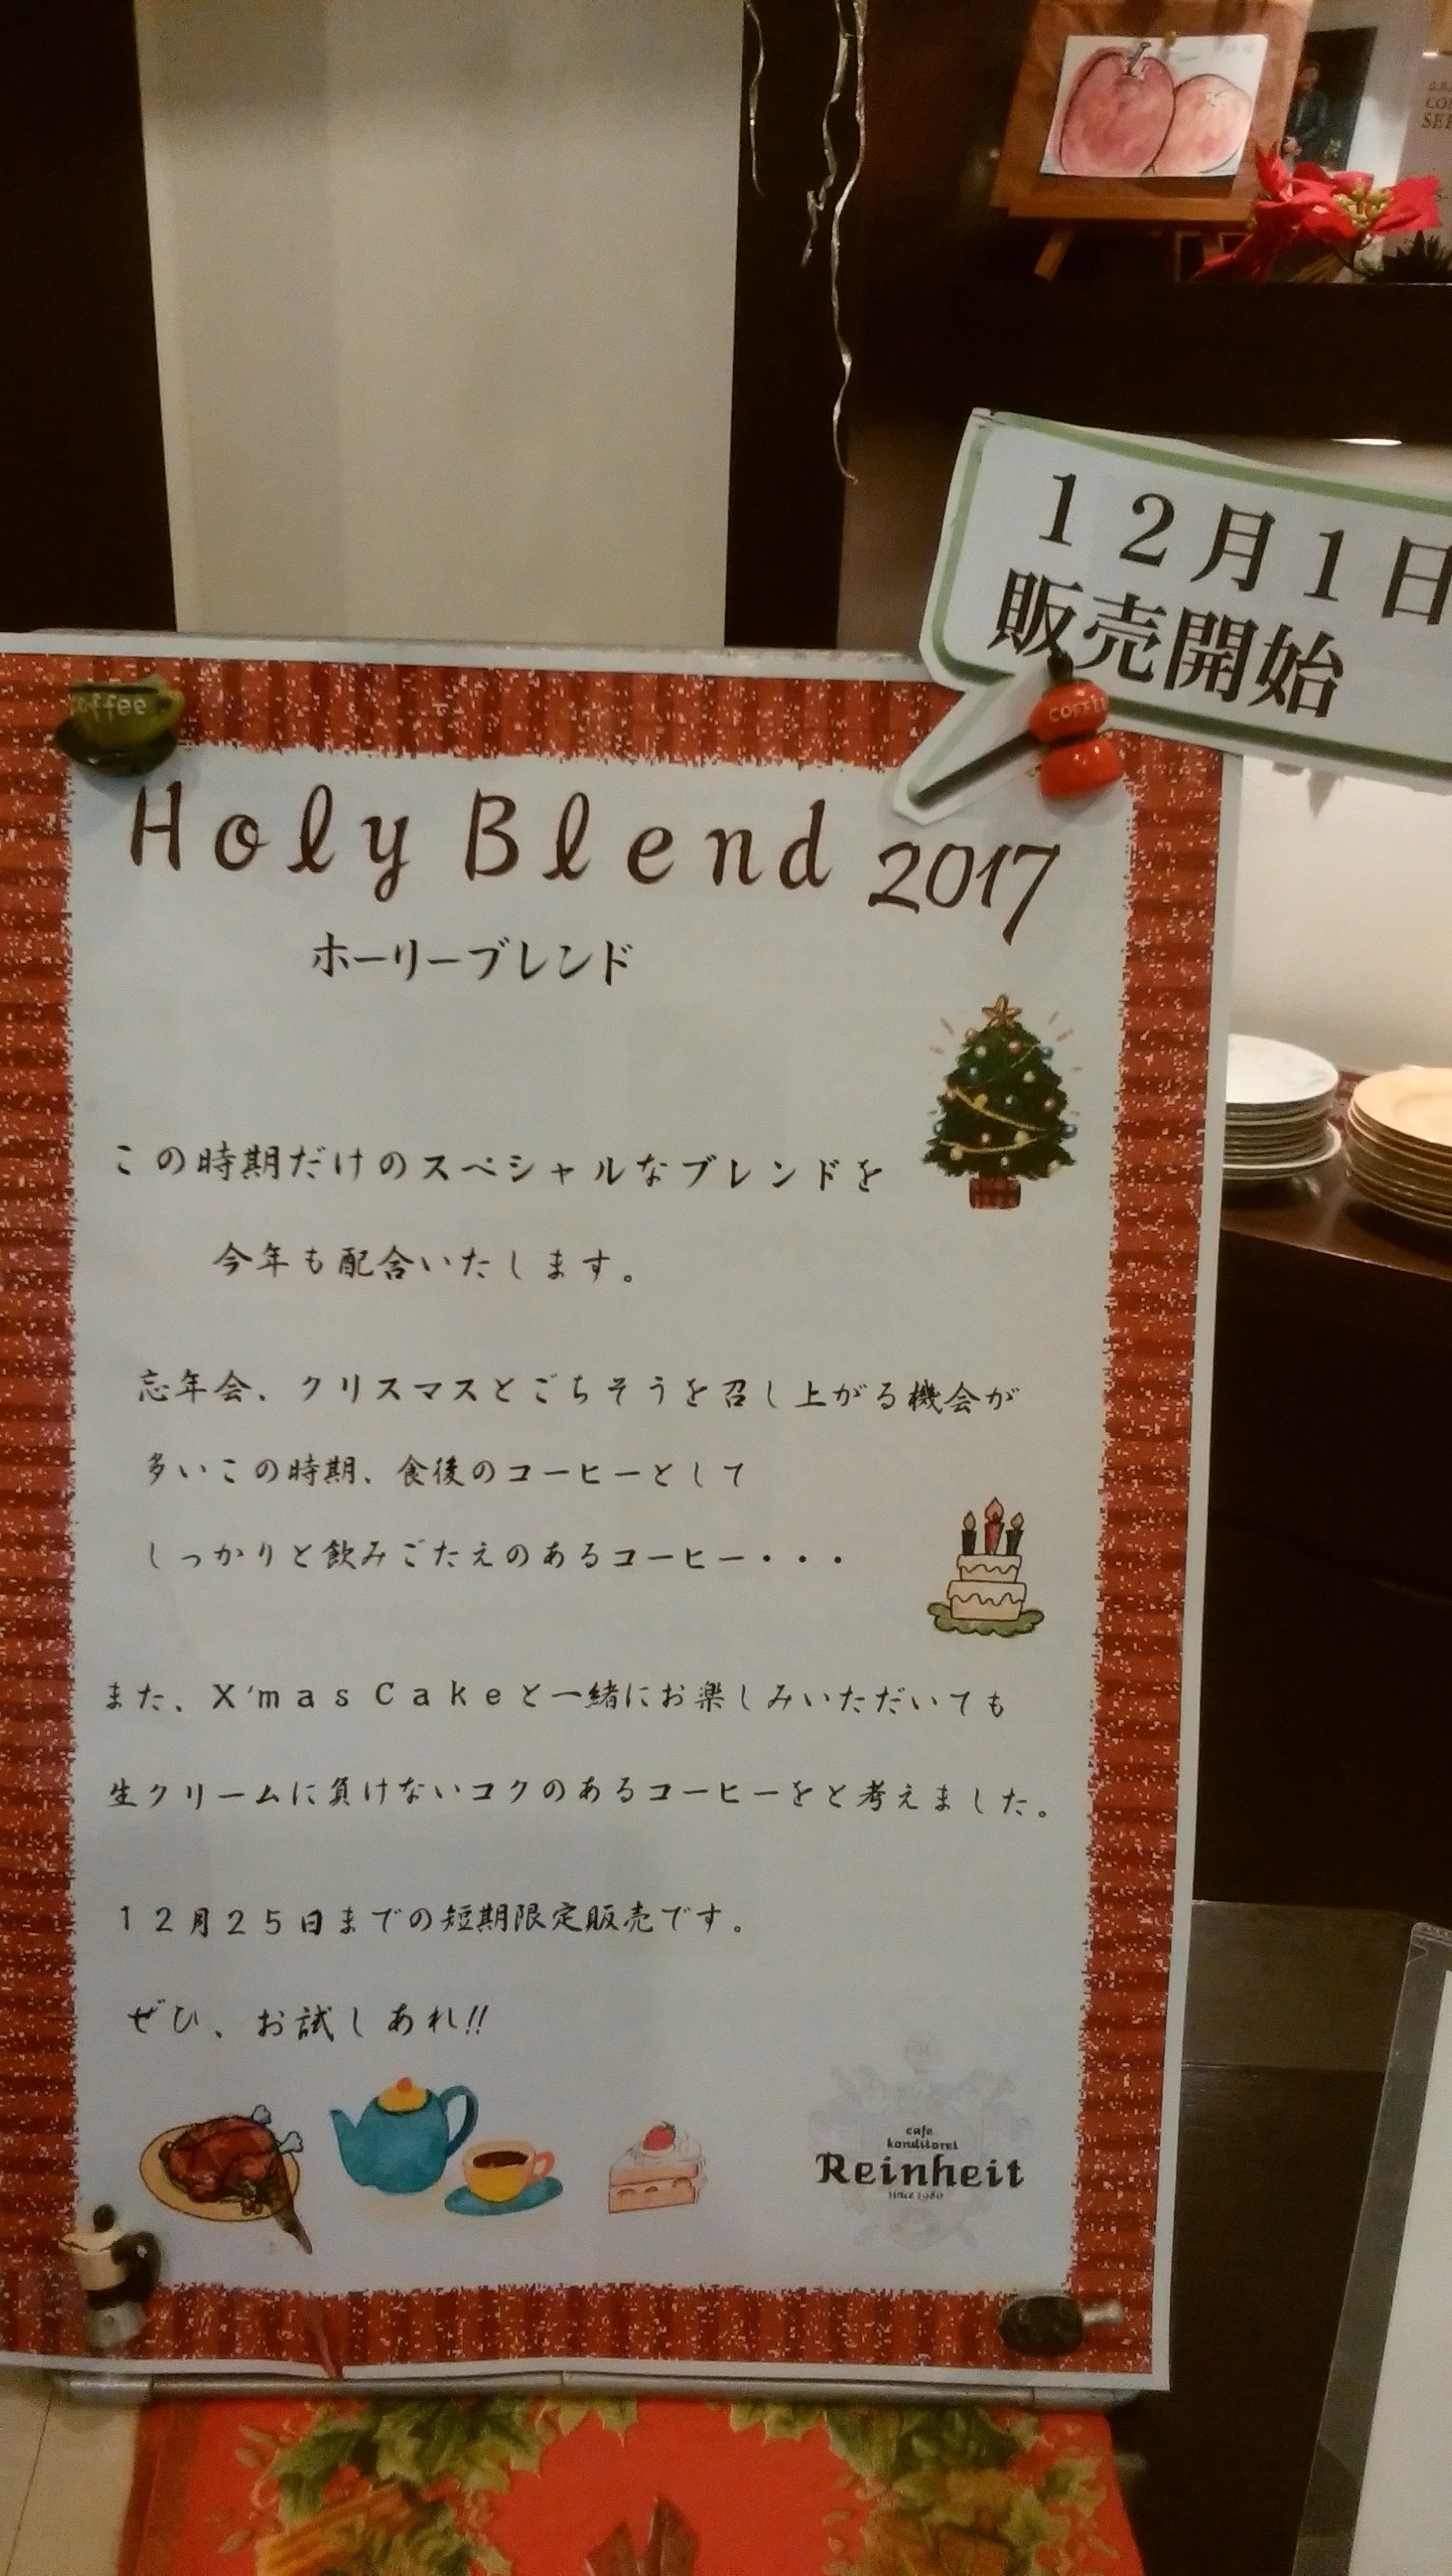 COFFEE
１２月１日
販売開始
coffee
Holy Blend 2017
ホーリーブレンド
この時期だけのスペシャルなブレンドを
今年も配合いたします。
忘年会、クリスマスとごちそうを召し上がる機会が
多いこの時期、食後のコーヒーとして
しっかりと飲みごたえのあるコーヒー・・・
また、X'mas Cakeと一緒にお楽しみいただいても
生クリームに負けないコクのあるコーヒーをと考えました。
１２月２５日までの短期限定販売です。
ぜひ、お試しあれ!!
cafe
konditorei
Reinheit
since 1980